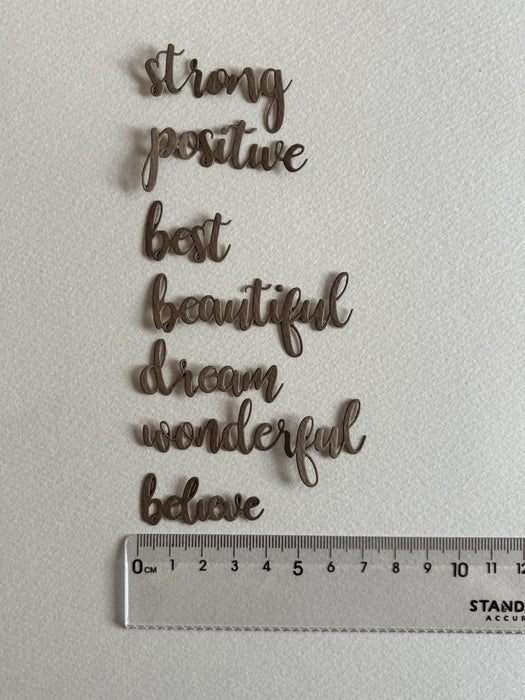 strong
positive
best
beautiful
dream
wonderful
believe
0 CM 1 2 3 4 5 6 7 8 9 10 11
ACCUR